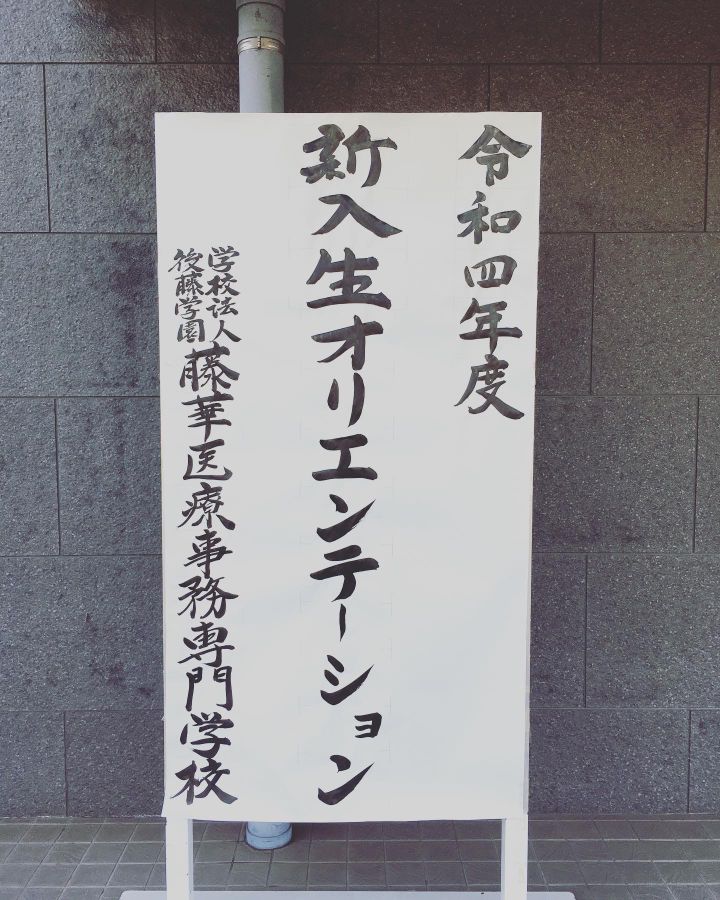 令和四年度
新入生オリエンテーション
学校法人
後藤学園
藤華医療事務専門学校